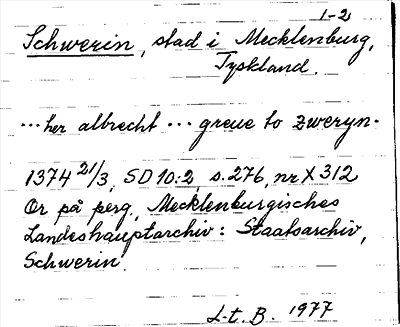 1-2
Schwerin, stad i Mecklenburg,
Tyskland.
...her albrecht ... greue to zweryn.
1374 21/3, SD 10:2, s.276, nr X 312
Or på perg., Mecklenburgisches
Landeshauptarchiv: Staatsarchiv,
Schwerin.
L-t. B. 1977